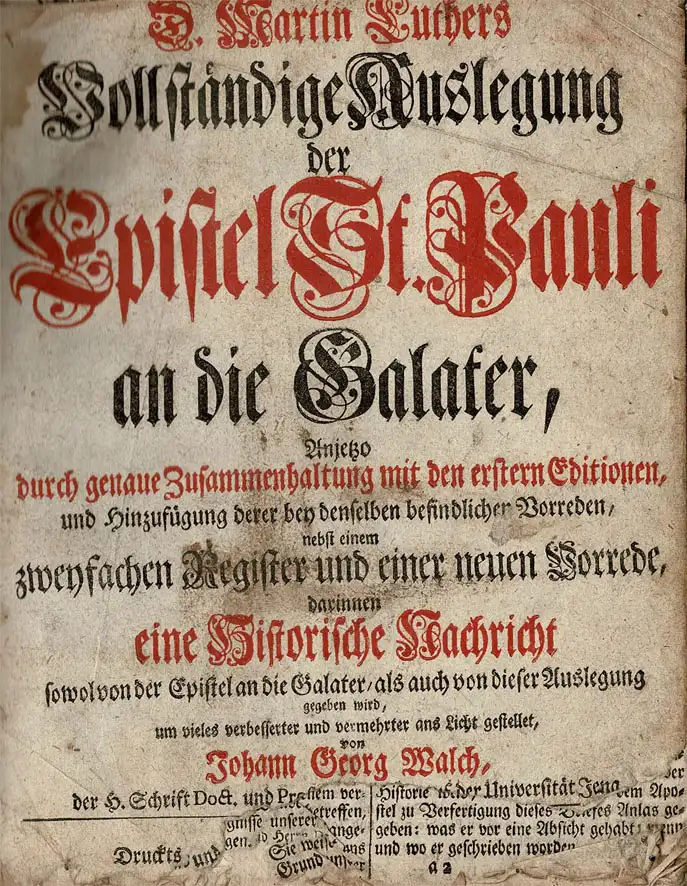 D. Martin Luthers
Vollständige Auslegung
der
Epistel St. Pauli
an die Galater,
Anjetzo
durch genaue Zusammenhaltung mit den erstern Editionen,
und Hinzufügung derer bey denselben befindlicher Vorreden,
nebst einem
zweyfachen Register und einer neuen Vorrede,
darinnen
eine Historische Nachricht
sowol von der Epistel an die Galater, als auch von dieser Auslegung
gegeben wird,
um vieles verbesserter und vermehrter ans Licht gestellet,
von
Johann Georg Walch,
der H. Schrift Doct. und
treffen,
gnisse unserer
gen.
Sie weise
Grund
Druckts und
Historie der Universität Jena
stel zu Verfertigung dieses Anlas ge-
geben: was er vor eine Absicht gehabt:
und wo er geschrieben worden
a 2